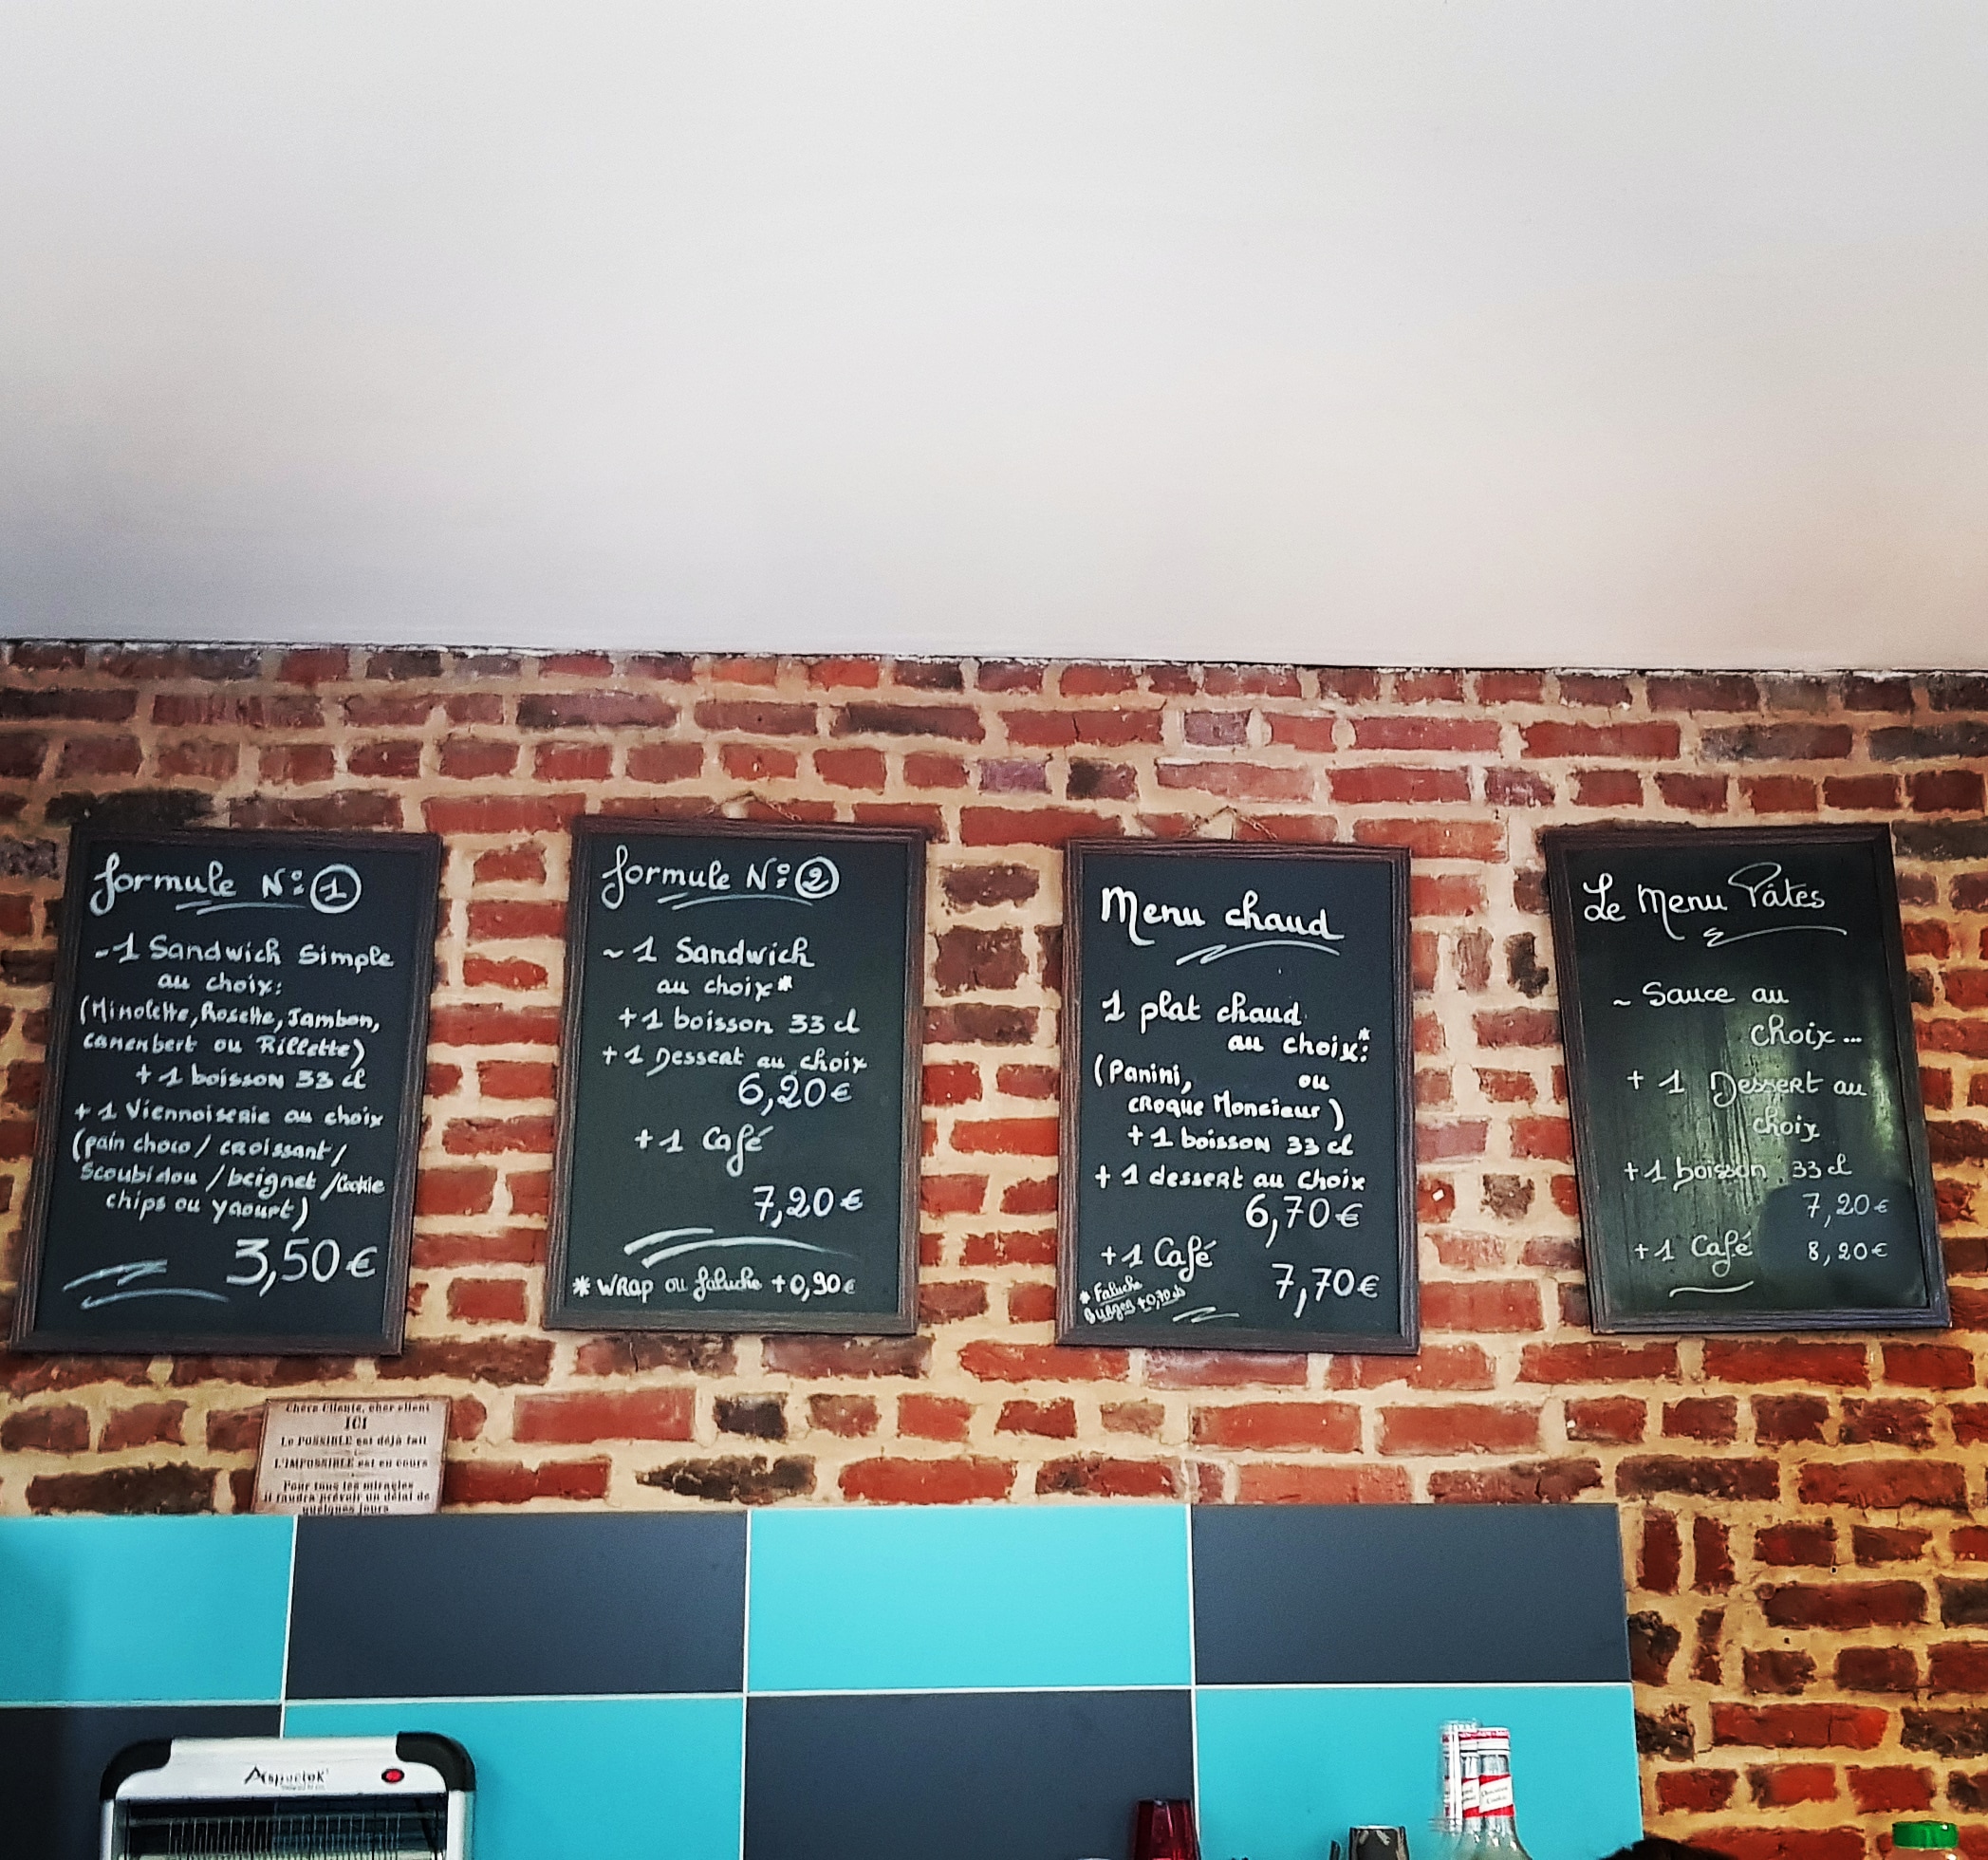 formule N°: 1
~1 Sandwich Simple
au choix:
(Mimolette, Rosette, Jambon,
camenbert ou Rillette)
+ 1 boisson 33 cl
+ 1 Viennoiserie au choix
(pain choco / croissant /
Scoubidou / beignet / Cookie
chips ou yaourt)
3,50€
formule N°: 2
~ 1 Sandwich
au choix*
+1 boisson 33 cl
+ 1 Dessert au choix
6,20€
+1 Café
7,20€
* WRAP ou faluche +0,90€
Menu chaud
1 plat chaud
au choix*:
(Panini, ou
croque Monsieur)
+ 1 boisson 33 cl
+ 1 dessert au choix
6,70€
+1 Café
7,70€
* Faluche
Burger +0,70
Le Menu Pâtes
~ Sauce au
choix...
+ 1 Dessert au
choix
+1 boisson 33 cl
7,20€
+1 Café 8,20€
Chère Cliente, cher client
ICI
Le POSSIBLE est déjà fait
L'IMPOSSIBLE est en cours
Pour tous les miracles
il faudra prévoir un délai de
quelques jours